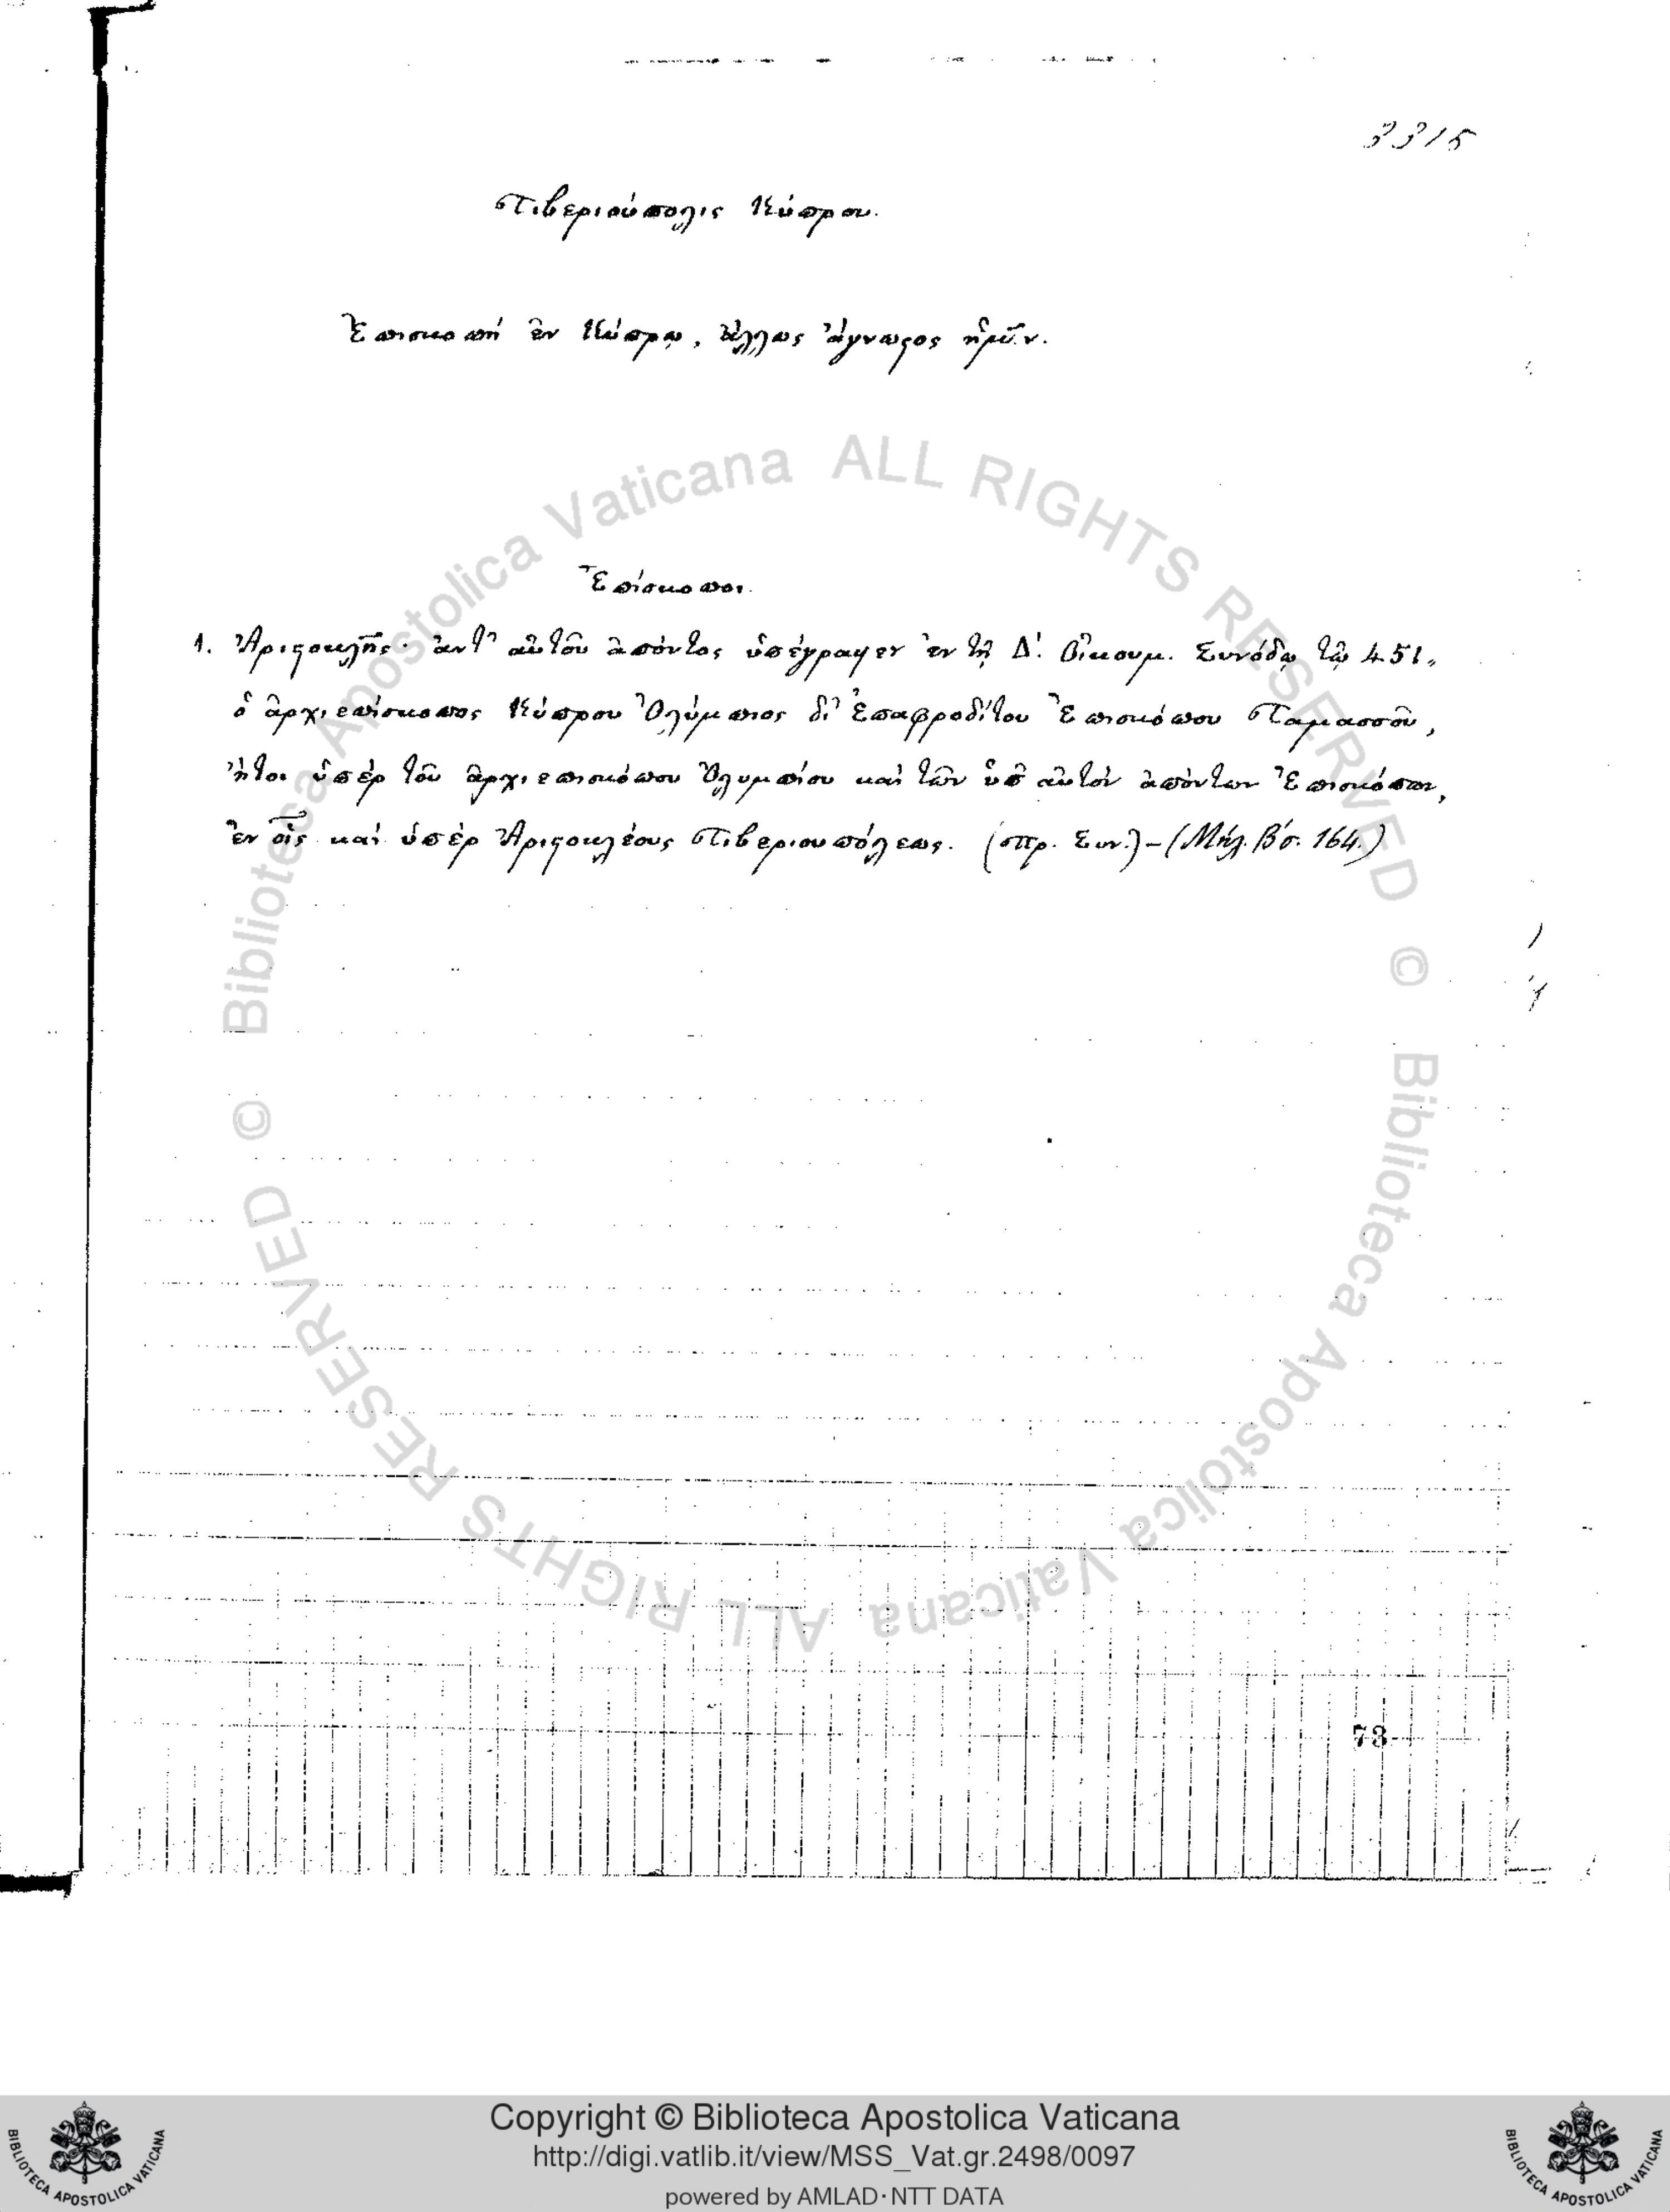 3315
Τιβεριούπολις Κύπρου.
Ἐπισκοπή ἐν Κύπρῳ, ἄλλως ἄγνωστος ἡμῖν.
Ἐπίσκοποι.
1. Ἀριστοκλῆς· ἀντ' αὐτοῦ ἀπόντος ὑπέγραψεν ἐν τῇ Δ'. Οἰκουμ. Συνόδῳ τῷ 451,
ὁ ἀρχιεπίσκοπος Κύπρου Ὀλύμπιος δι' Ἐπαφροδίτου Ἐπισκόπου Ταμασσοῦ,
ἤτοι ὑπέρ τοῦ ἀρχιεπισκόπου Ὀλυμπίου καί τῶν ὑπ' αὐτόν ἀπόντων Ἐπισκόπων,
ἐν οἷς καί ὑπέρ Ἀριστοκλέους Τιβεριουπόλεως. (πρ. Συν.) - (Μήλ. Β'σ. 164.)
73
© Biblioteca Apostolica Vaticana ALL RIGHTS RESERVED
© Biblioteca Apostolica Vaticana ALL RIGHTS RESERVED
BIBLIOTECA APOSTOLICA VATICANA
Copyright © Biblioteca Apostolica Vaticana
http://digi.vatlib.it/view/MSS_Vat.gr.2498/0097
powered by AMLAD·NTT DATA
BIBLIOTECA APOSTOLICA VATICANA